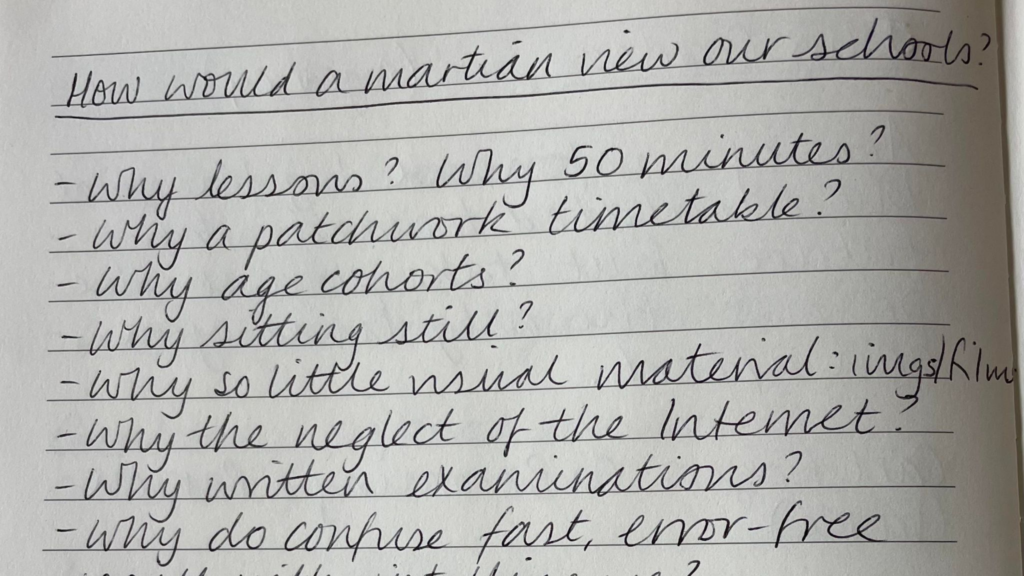 How would a martian view our schools?
- Why lessons? Why 50 minutes?
- Why a patchwork timetable?
- Why age cohorts?
- Why sitting still?
- Why so little visual material: imgs/film
- Why the neglect of the Internet?
- Why written examinations?
- Why do confuse fast, error-free
?